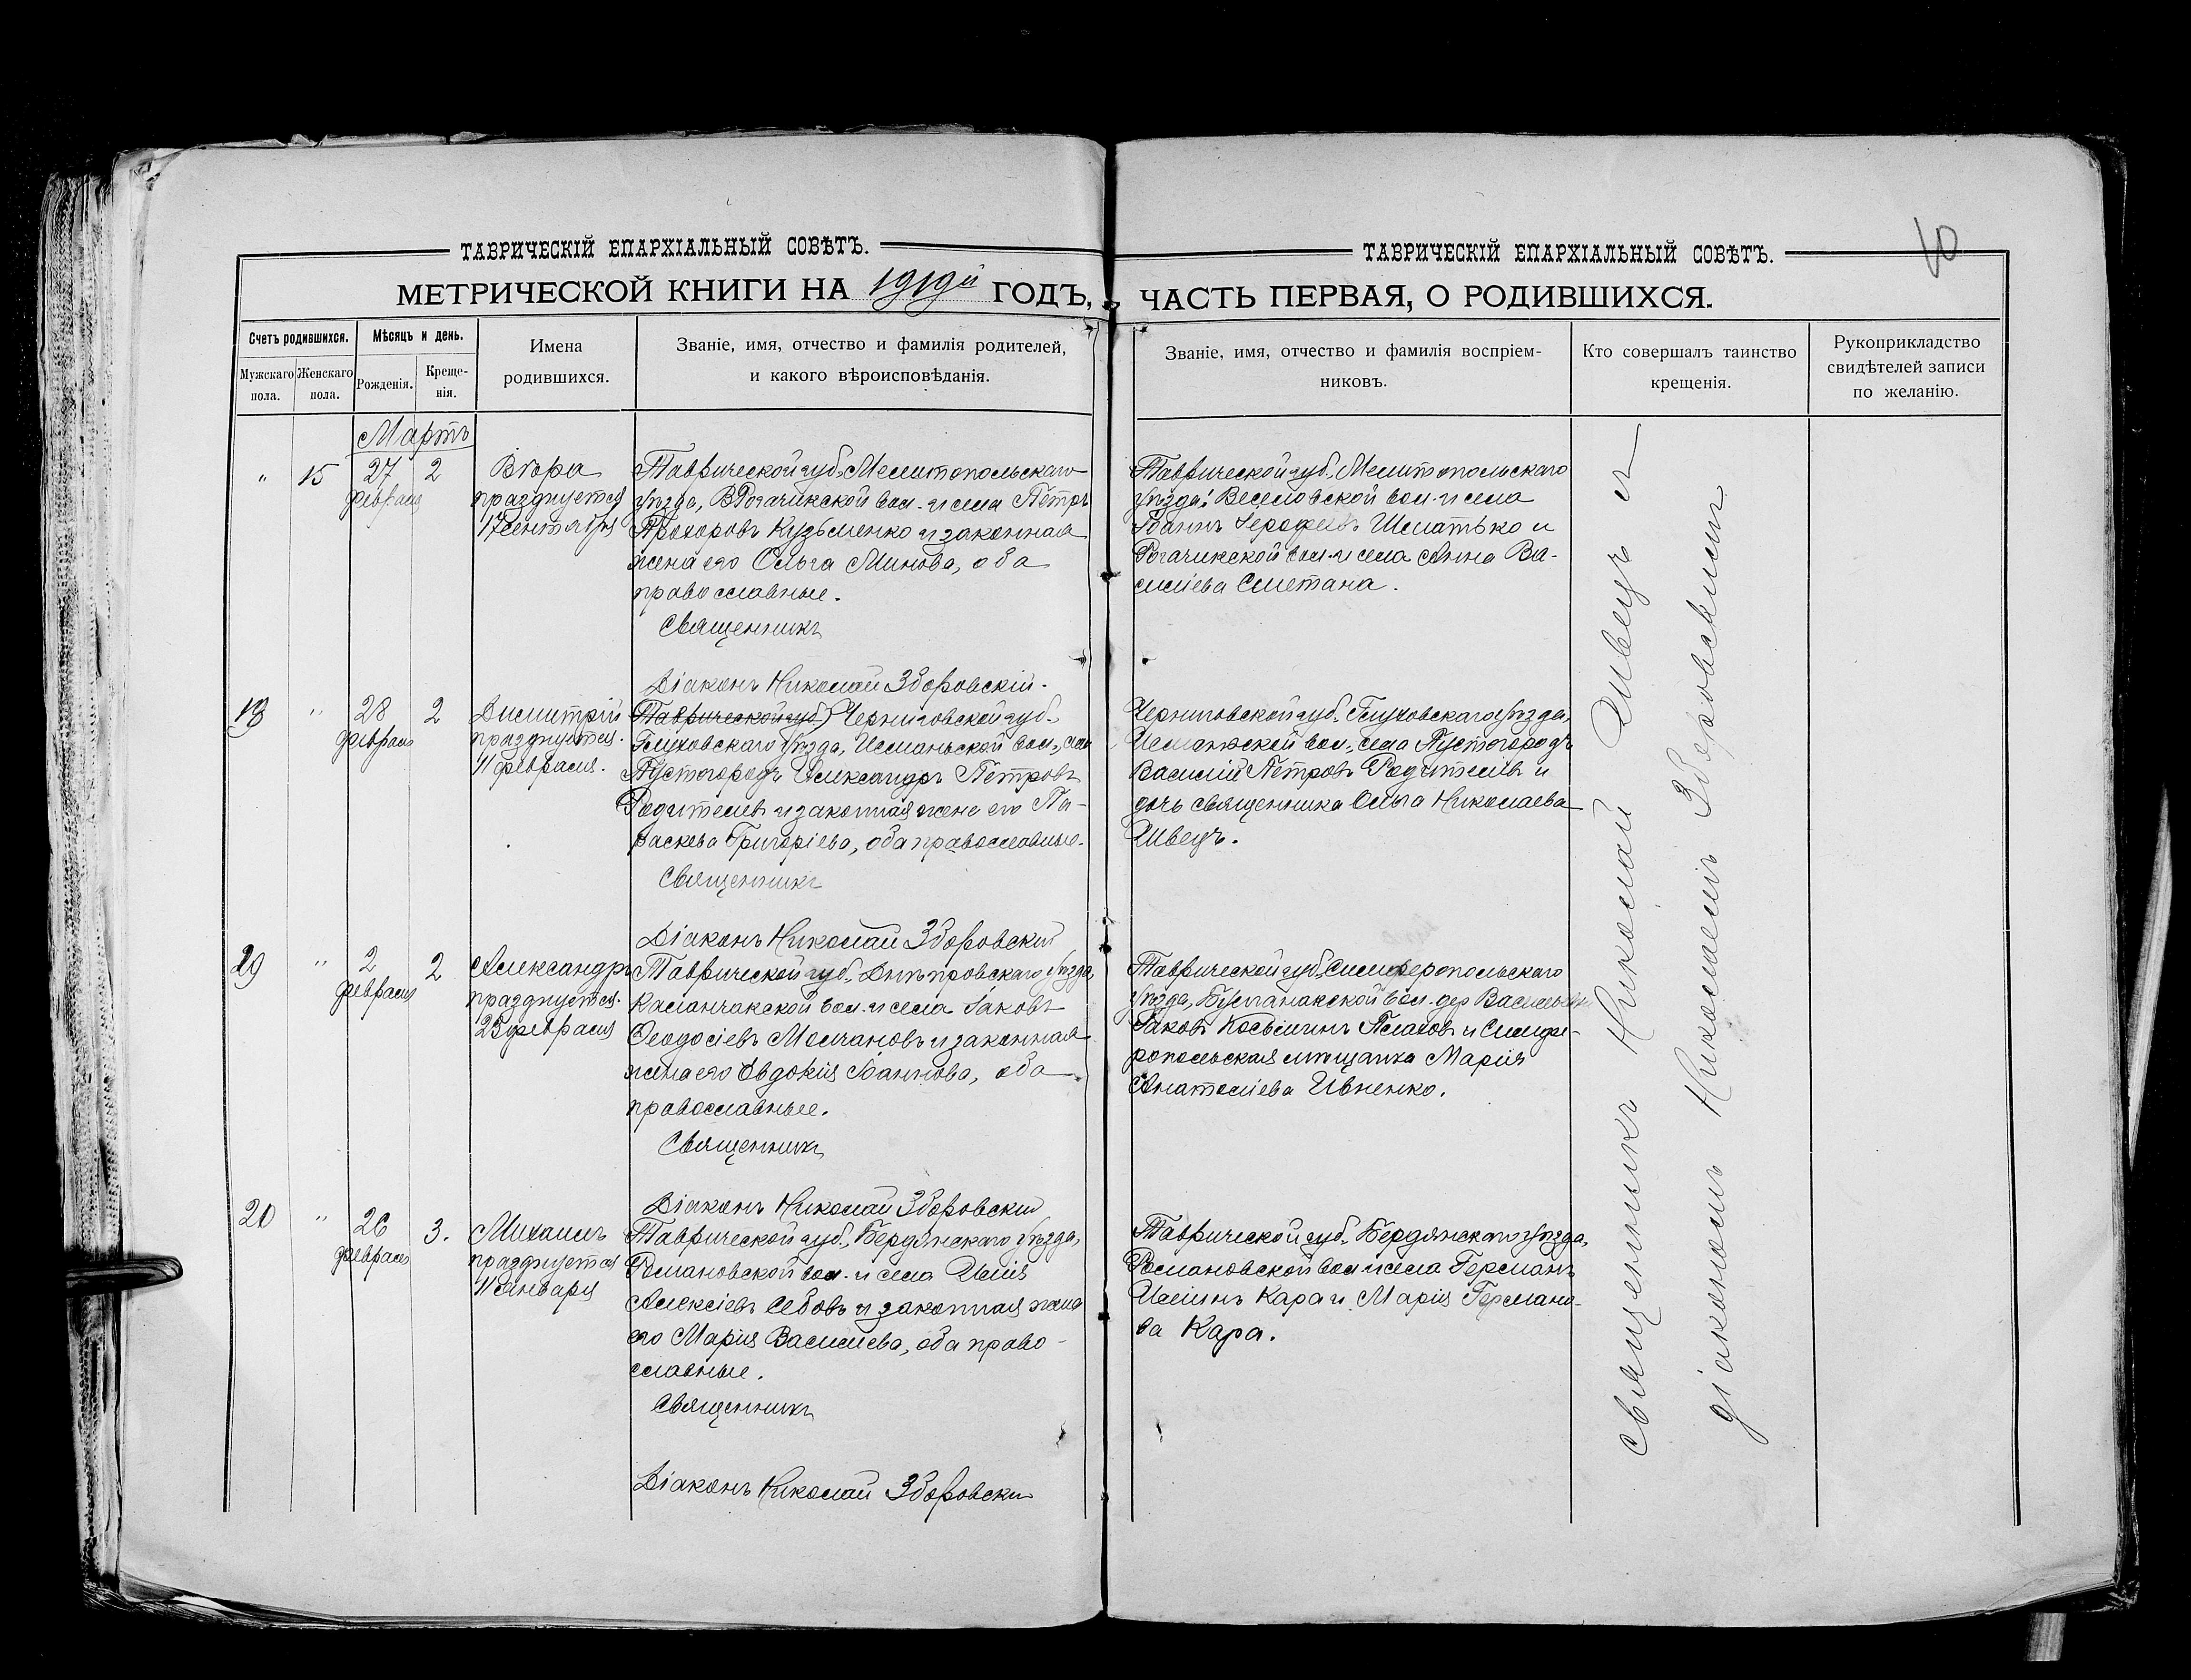 ТАВРИЧЕСКІЙ ЕПАРХІАЛЬНЫЙ СОВѢТЪ.
МЕТРИЧЕСКОЙ КНИГИ НА 1919й ГОДЪ,
Счетъ родившихся.
Мужскаго пола.
Женскаго пола.
Мѣсяцъ и день.
Рожденія.
Креще-
нія.
Имена
родившихся.
Званіе, имя, отчество и фамилія родителей,
и какого вѣроисповѣданія.
Мартъ
" 15 27 2
февраля
Вѣра
празднуется
17 сентября
Таврической губ. Мелитопольскаго
уѣзда, В Рогачикской вол. и села Петръ
Прохоровъ Кузьменко и законная
жена его Ольга Минова, оба
православные.
Священникъ
Діаконъ Николай Зборовскій.
18 " 28 2
февраля
Димитрій
празднуется
11 февраля.
Таврической губ.) Черниговской губ.,
Глуховскаго уѣзда, Исманьской вол., села
Пустогородъ Александръ Петровъ
Родителевъ и законная жена его Па-
раскева Григоріева, оба православные.
Священникъ
Діаконъ Николай Зборовскій
19 " 2 2
февраля
Александръ
празднуется
23 февраля
Таврической губ. Днѣпровскаго уѣзда
Каланчакской вол. и села Іаковъ
Ѳеодосіевъ Молчановъ и законная
жена его Евдокія Іоаннова, оба
православные.
Священникъ
Діаконъ Николай Зборовский
20 " 26 3.
февраля
Михаилъ
празднуется
11 января
Таврической губ., Бердянскаго уѣзда,
Романовской вол. и села Илія
Алексіевъ Себовъ и законная жена
его Марія Василиева, оба право-
славные.
Священникъ
Діаконъ Николай Зборовски
10
ТАВРИЧЕСКІЙ ЕПАРХІАЛЬНЫЙ СОВѢТЪ.
ЧАСТЬ ПЕРВАЯ, О РОДИВШИХСЯ.
Званіе, имя, отчество и фамилія воспріем-
никовъ.
Кто совершалъ таинство
крещенія.
Рукоприкладство
свидѣтелей записи
по желанію.
Таврической губ. Мелитопольскаго
уѣзда, Веселовской вол. и села
Іоаннъ Іерофеевъ Шматько и
Рогачикской вол. и села Анна Ва-
силіева Сметана.
Черниговской губ. Глуховскаго уѣзда,
Исманьской вол., села Пустогородъ
Василій Петровъ Родителевъ и
дочь священника Ольга Николаева
Швецъ.
Таврической губ. Симферопольскаго
уѣзда, Булганакской вол. дер
Іаковъ Плахов и Симфе-
ропольская мѣщанка Марія
Анатоліева Ивненко.
Таврической губ. Бердянскаго уѣзда,
Романовской вол и села Германъ
Илиинъ Кара и Марія Германо-
ва Кара.
Священникъ Николай Швецъ и
діакономъ Николаемъ Зборовскимъ